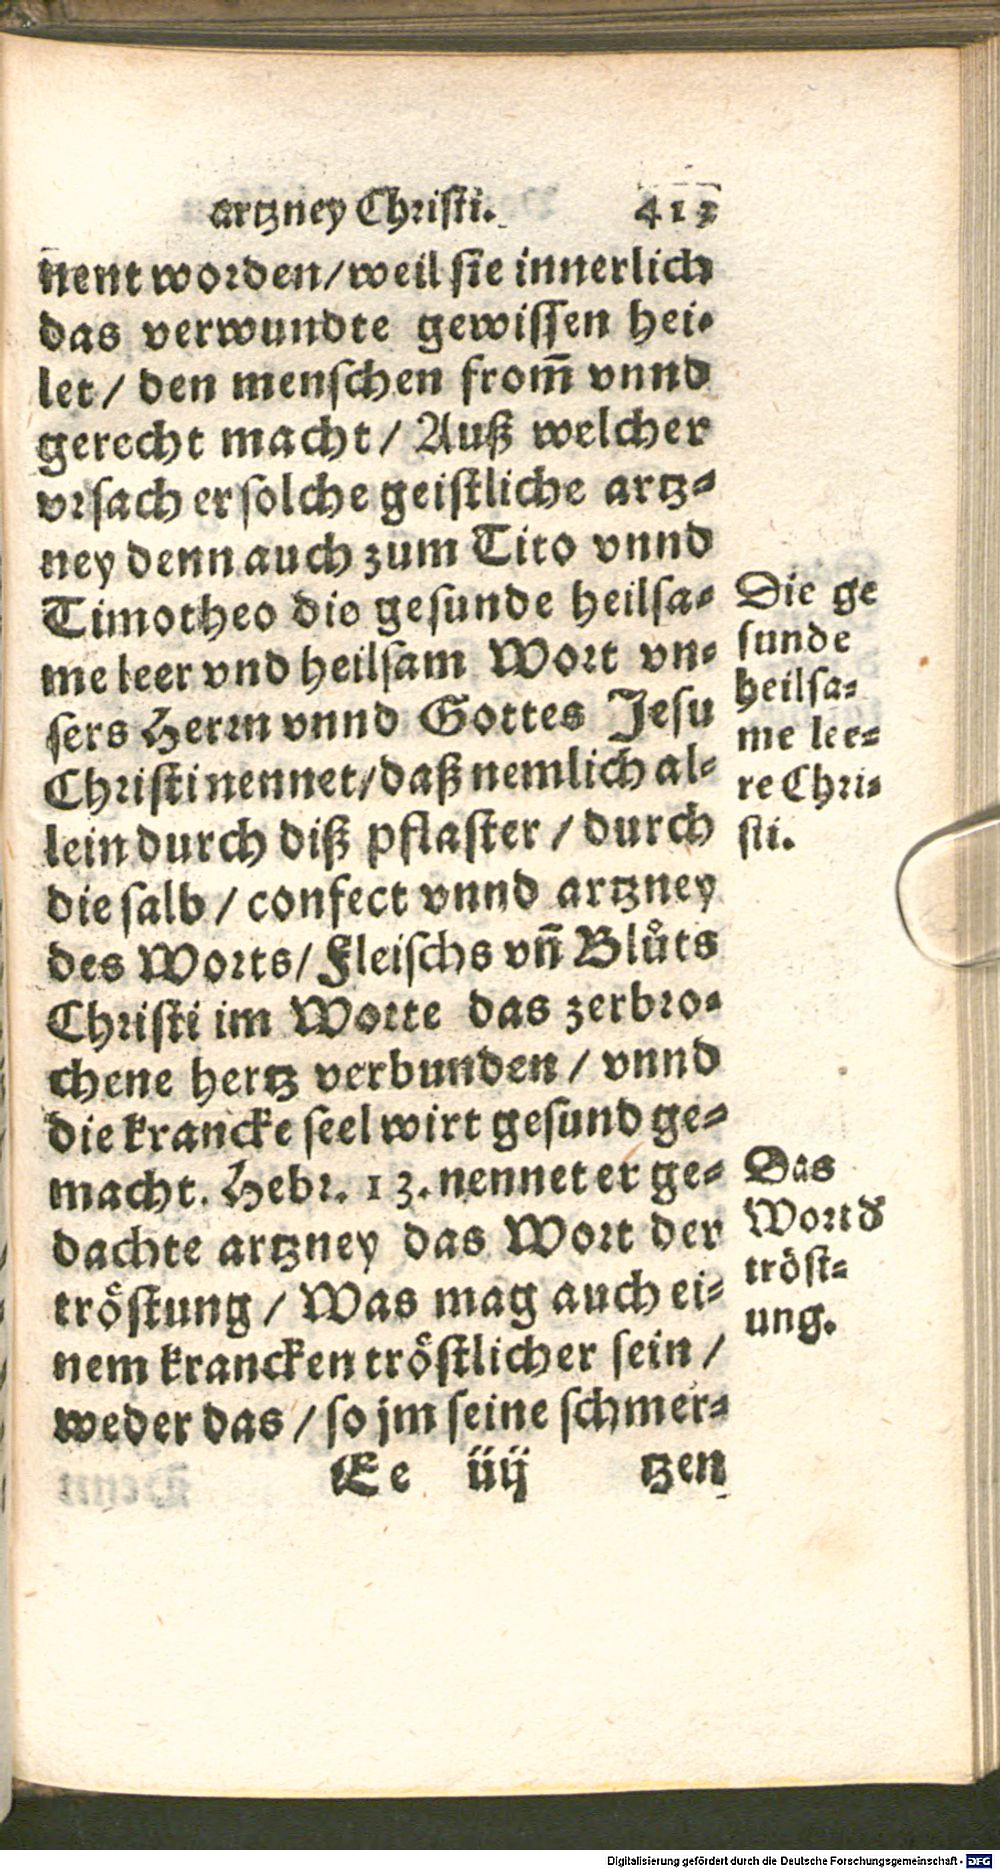 artzney Christi. 413
nent worden/weil sie innerlich
das verwundte gewissen hei-
let / den menschen from̄ vnnd
gerecht macht / Auß welcher
vrsach er solche geistliche artz-
ney denn auch zum Tito vnnd
Timotheo die gesunde heilsa-
me leer vnd heilsam Wort vn-
sers Herrn vnnd Gottes Jesu
Christi nennet/daß nemlich al-
lein durch diß pflaster / durch
die salb / confect vnnd artzney
des Worts/ Fleischs vn̄ Blůts
Christi im Worte das zerbro-
chene hertz verbunden / vnnd
die krancke seel wirt gesund ge-
macht. Hebr. 13. nennet er ge-
dachte artzney das Wort der
tröstung / Was mag auch ei-
nem krancken tröstlicher sein /
weder das / so jm seine schmer-
Ee iiij tzen
Die ge
sunde
heilsa-
me lee-
re Chri-
sti.
Das
Wort d'
tröst-
ung.
Digitalisierung gefördert durch die Deutsche Forschungsgemeinschaft - DFG